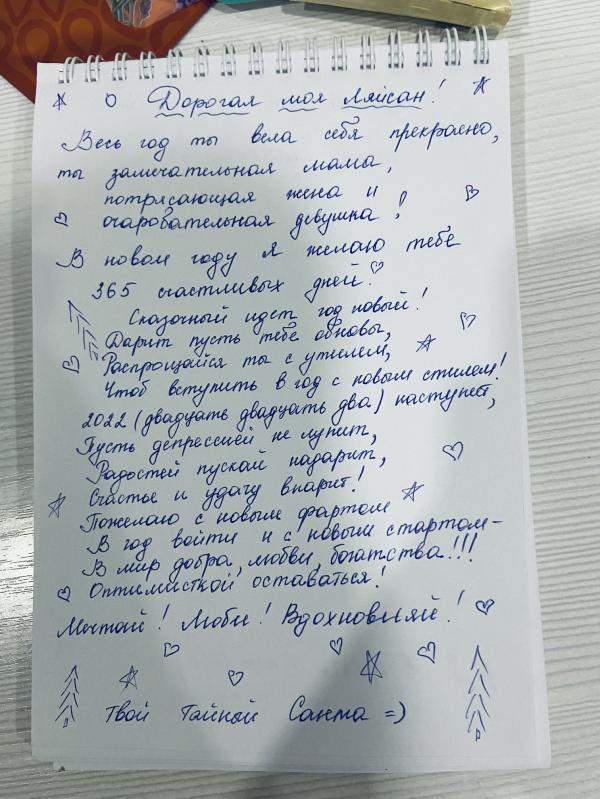 Дорогая моя Ляйсан!
Весь год ты вела себя прекрасно,
ты замечательная мама,
потрясающая жена и
очаровательная девушка!
В новом году я желаю тебе
365 счастливых дней!
Сказочный идет год новый!
Дарит пусть тебе обновы,
Распрощайся ты с утилем,
Чтоб вступить в год с новым стилем!
2022 (двадцать двадцать два) наступает,
Пусть депрессией не лупит,
Радостей пускай надарит,
Счастье и удачу впарит!
Пожелаю с новым фартом
В год войти и с новым стартом –
В мир добра, любви, богатства!!!
Оптимисткой оставаться!
Мечтай! Люби! Вдохновляй!
Твой Тайный Санта =)